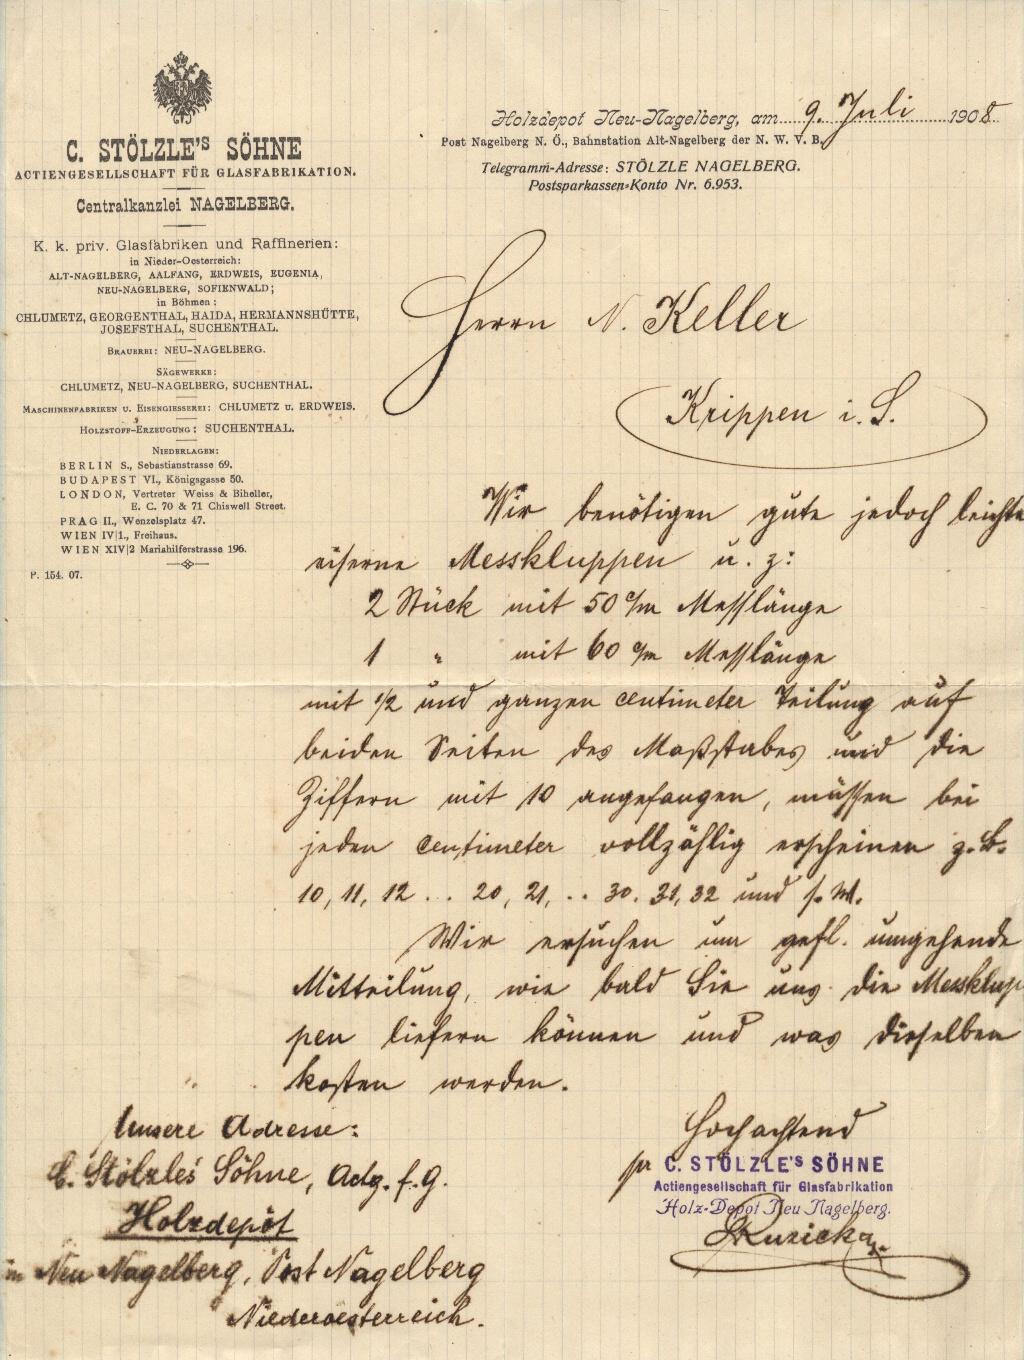 C. STÖLZLE'S SÖHNE
ACTIENGESELLSCHAFT FÜR GLASFABRIKATION.
Centralkanzlei NAGELBERG.
K. k. priv. Glasfabriken und Raffinerien:
in Nieder-Oesterreich:
ALT-NAGELBERG, AALFANG, ERDWEIS, EUGENIA,
NEU-NAGELBERG, SOFIENWALD;
in Böhmen:
CHLUMETZ, GEORGENTHAL, HAIDA, HERMANNSHÜTTE,
JOSEFSTHAL, SUCHENTHAL.
BRAUEREI: NEU-NAGELBERG.
SÄGEWERKE:
CHLUMETZ, NEU-NAGELBERG, SUCHENTHAL.
MASCHINENFABRIKEN U. EISENGIESSEREI: CHLUMETZ U. ERDWEIS.
HOLZSTOFF-ERZEUGUNG: SUCHENTHAL.
NIEDERLAGEN:
BERLIN S., Sebastianstrasse 69.
BUDAPEST VI., Königsgasse 50.
LONDON, Vertreter Weiss & Biheller,
E. C. 70 & 71 Chiswell Street.
PRAG II., Wenzelsplatz 47.
WIEN IV|1., Freihaus.
WIEN XIV|2 Mariahilferstrasse 196.
P. 154. 07.
Holzdepot Neu-Nagelberg, am 9. Juli 1908
Post Nagelberg N. Ö., Bahnstation Alt-Nagelberg der N. W. V. B.
Telegramm-Adresse: STÖLZLE NAGELBERG.
Postsparkassen-Konto Nr. 6.953.
Herrn N. Keller
Krippen i. S.
Wir benötigen gute jedoch leichte
eiserne Messkluppen u. z:
2 Stück mit 50 c/m Messlänge
1 " mit 60 c/m Messlänge
mit 1/2 und ganzen centimeter Teilung auf
beiden Seiten des Maßstabes und die
Ziffern mit 10 angefangen, müssen bei
jeden centimeter vollzählig erscheinen z. B.
10, 11, 12 .. 20, 21, .. 30. 31, 32 und s. w.
Wir ersuchen um gefl. umgehende
Mitteilung, wie bald Sie uns die Messklup
pen liefern können und was dieselben
kosten werden.
Hochachtend
pr C. STÖLZLE'S SÖHNE
Actiengesellschaft für Glasfabrikation
Holz-Depot Neu Nagelberg.
Ruzicka
Unsere Adresse:
C. Stölzles Söhne, Actg. f. G.
Holzdepôt
in Neu Nagelberg, Post Nagelberg
Niederoesterreich.